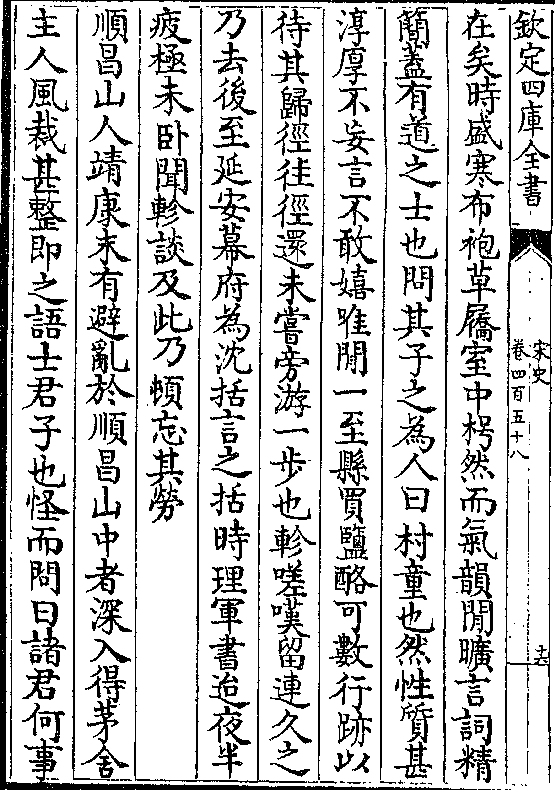 欽定四庫全書
宋史
卷四百五十八
十六
在矣時盛寒布袍草屩室中枵然而氣韻閒曠言詞精
簡蓋有道之士也問其子之為人曰村童也然性質甚
淳厚不妄言不敢嬉唯間一至縣買鹽酪可數行跡以
待其歸徑往徑還未嘗旁游一步也軫嗟嘆留連久之
乃去後至延安幕府為沈括言之括時理軍書迨夜半
疲極未卧聞軫談及此乃頓忘其勞
順昌山人靖康末有避亂於順昌山中者深入得茅舍
主人風裁甚整即之語士君子也怪而問曰諸君何事